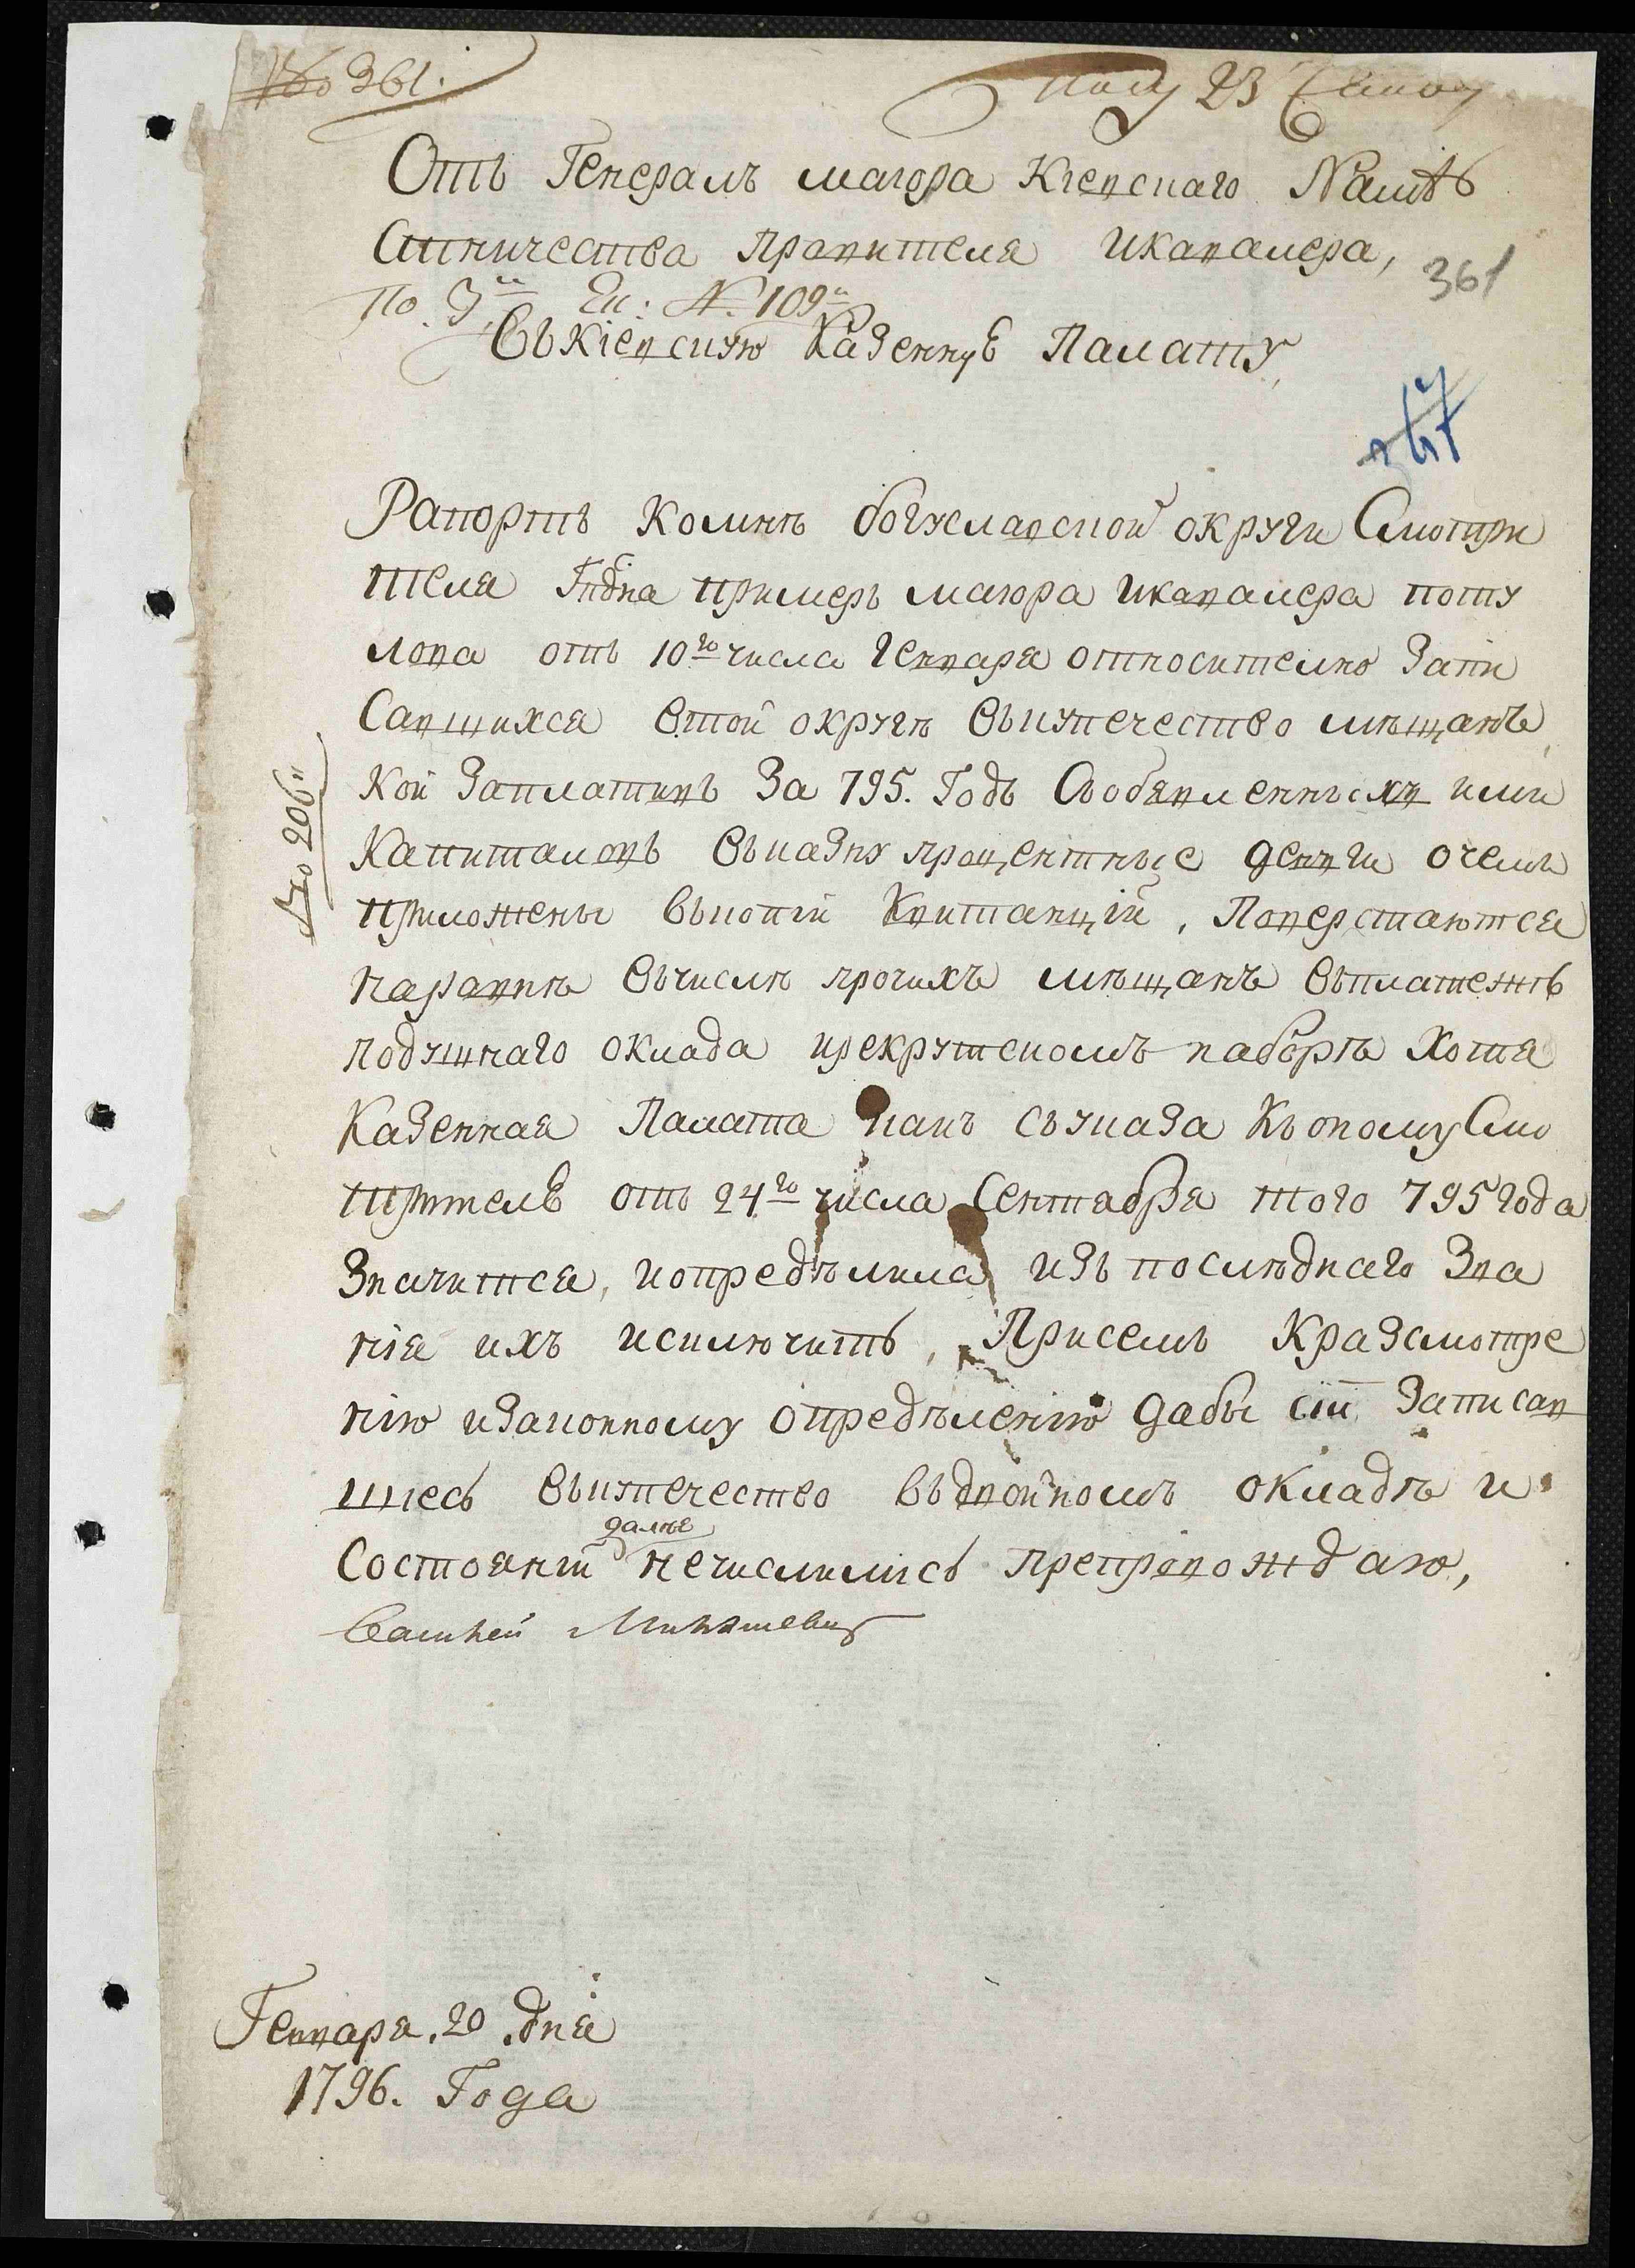 № 361.
Полу 23 Генвар
Отъ Генералъ маіора Кіевскаго Намѣ
стничества правителя икавалера,
361
По. Эк: №. 109й
Въкіевскую Казенную Палату
Рапортъ комнѣ богуславской округи Смотри
теля Гпдна примеръ маіора икавалера поту
лова отъ 10го числа Генваря относително Запи
Савшихся втой округѣ въкупечество мѣщанъ
кои Заплативъ За 795. Годъ Собъявленныхъ ими
Капиталовъ въказну процентные денги очемъ
приложены вкопіи Квитанціи, Поверстаются
наравнѣ въчислѣ прочихъ мѣщанъ въплатежѣ
подушнаго оклада ирекрутскомъ наборѣ Хотя
Казенная Палата какъ съуказа Къоному Смо
трителю отъ 24го числа Сентабря того 795 года
Значится, иопредѣлила изъ послѣднаго Зва
нія ихъ исключить, Присемъ Кразсмотре
нію изаконному опредѣленію дабы сіи Записав
шіесь въкупечество въдвойномъ окладѣ и
далѣе
Состояніи нечислились препровождаю,
Василей Милашевич
No 206й
Генваря. 20 .дня
1796. Года